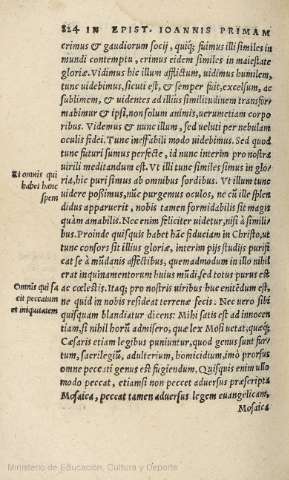 824 IN EPIST. IOANNIS PRIMAM
crimus & gaudiorum socij, quiq; fuimus illi similes in
mundi contemptu, crimus eidem similes in maiestate
gloriæ. Vidimus hic illum afflictum, uidimus humilem,
tunc uidebimus, sicuti est, & semper fuit, excelsum, ac
sublimem, & uidentes ad illius similitudinem transfor
mabimur & ipsi, non solum animis, uerumetiam corpo
ribus. Videmus & nunc illum, sed ueluti per nebulam
oculis fidei. Tunc ineffabili modo uidebimus. Sed quod
tunc futuri sumus perfecte, id nunc interim pro nostra
uirili meditandum est. Vt illi tunc similes simus in glo-
Et omnis qui
habet hanc
spem
ria, hic puri simus ab omnibus sordibus. Vt illum tunc
uidere possimus, nūc purgemus oculos, ne cū ille splen
didus apparuerit, nobis tamen formidabilis sit magis
quàm amabilis. Nec enim feliciter uidetur, nisi à simili-
bus. Proinde quisquis habet hāc fiduciam in Christo, ut
tunc consors sit illius gloriæ, interim pijs studijs purifi
cat se à mūdanis affectibus, quem admodum in illo nihil
erat inquinamentorum huius mūdi, sed totus purus est
Omnis qui fa
cit peccatum
et iniquitatem
ac cœlestis. Itaq; pro nostris uiribus huc enitēdum est,
ne quid in nobis resideat terrenæ fecis. Nec uero sibi
quisquam blandiatur dicens: Mihi satis est ad innocen
tiam, si nihil horū admisero, quæ lex Mosi uetat, quæq;
Cæsaris etiam legibus puniuntur, quod genus sunt fur-
tum, sacrilegiū, adulterium, homicidium, imò prorsus
omne peccati genus est fugiendum. Quisquis enim ullo
modo peccat, etiamsi non peccet aduersus præscripta
Mosaica, peccat tamen aduersus legem euangelicam,
Mosaica
Ministerio de Educación, Cultura y Deporte